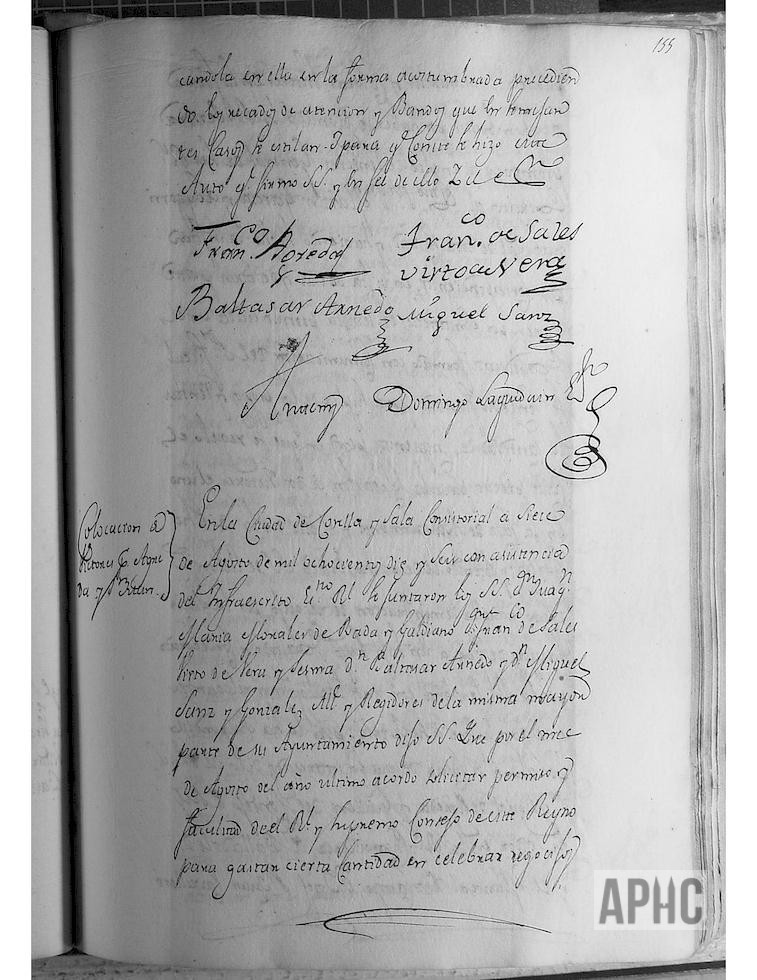 155
candola en ella en la forma acostumbrada precedien
do los recados de atencion y Bandos que en semejan
tes Casos se estilan. Y para qe. Conste se hizo este
Auto qe. firmo SS. y en fee de ello Yo el
Franco.
Franco. de Sales
Virto de Vera
Baltasar Arnedo Miguel Sanz
Domingo
Colocacion de
Retores Sta. Ague
da y Sn.
En la Ciudad de Corella y Sala Consistorial a Siete
de Agosto de mil ochocientos diez y Seis con asistencia
del Infraescrito Esno. Rl. se juntaron los SS. Dn. Juaqn.
Maria Morales de Rada y Galdiano Dn. Franco. de Sales
Virto de Vera y Sesma Dn. Baltasar Arnedo y Dn. Miguel
Sanz y Gonzalez Alle. y Regidores de la misma mayor
parte de su Ayuntamiento dijo SS. Que por el mes
de Agosto del año ultimo acordo solicitar permiso y
facultad de el Rl. y Supremo Consejo de este Reyno
para gastar cierta Cantidad en celebrar regocijos
APHC